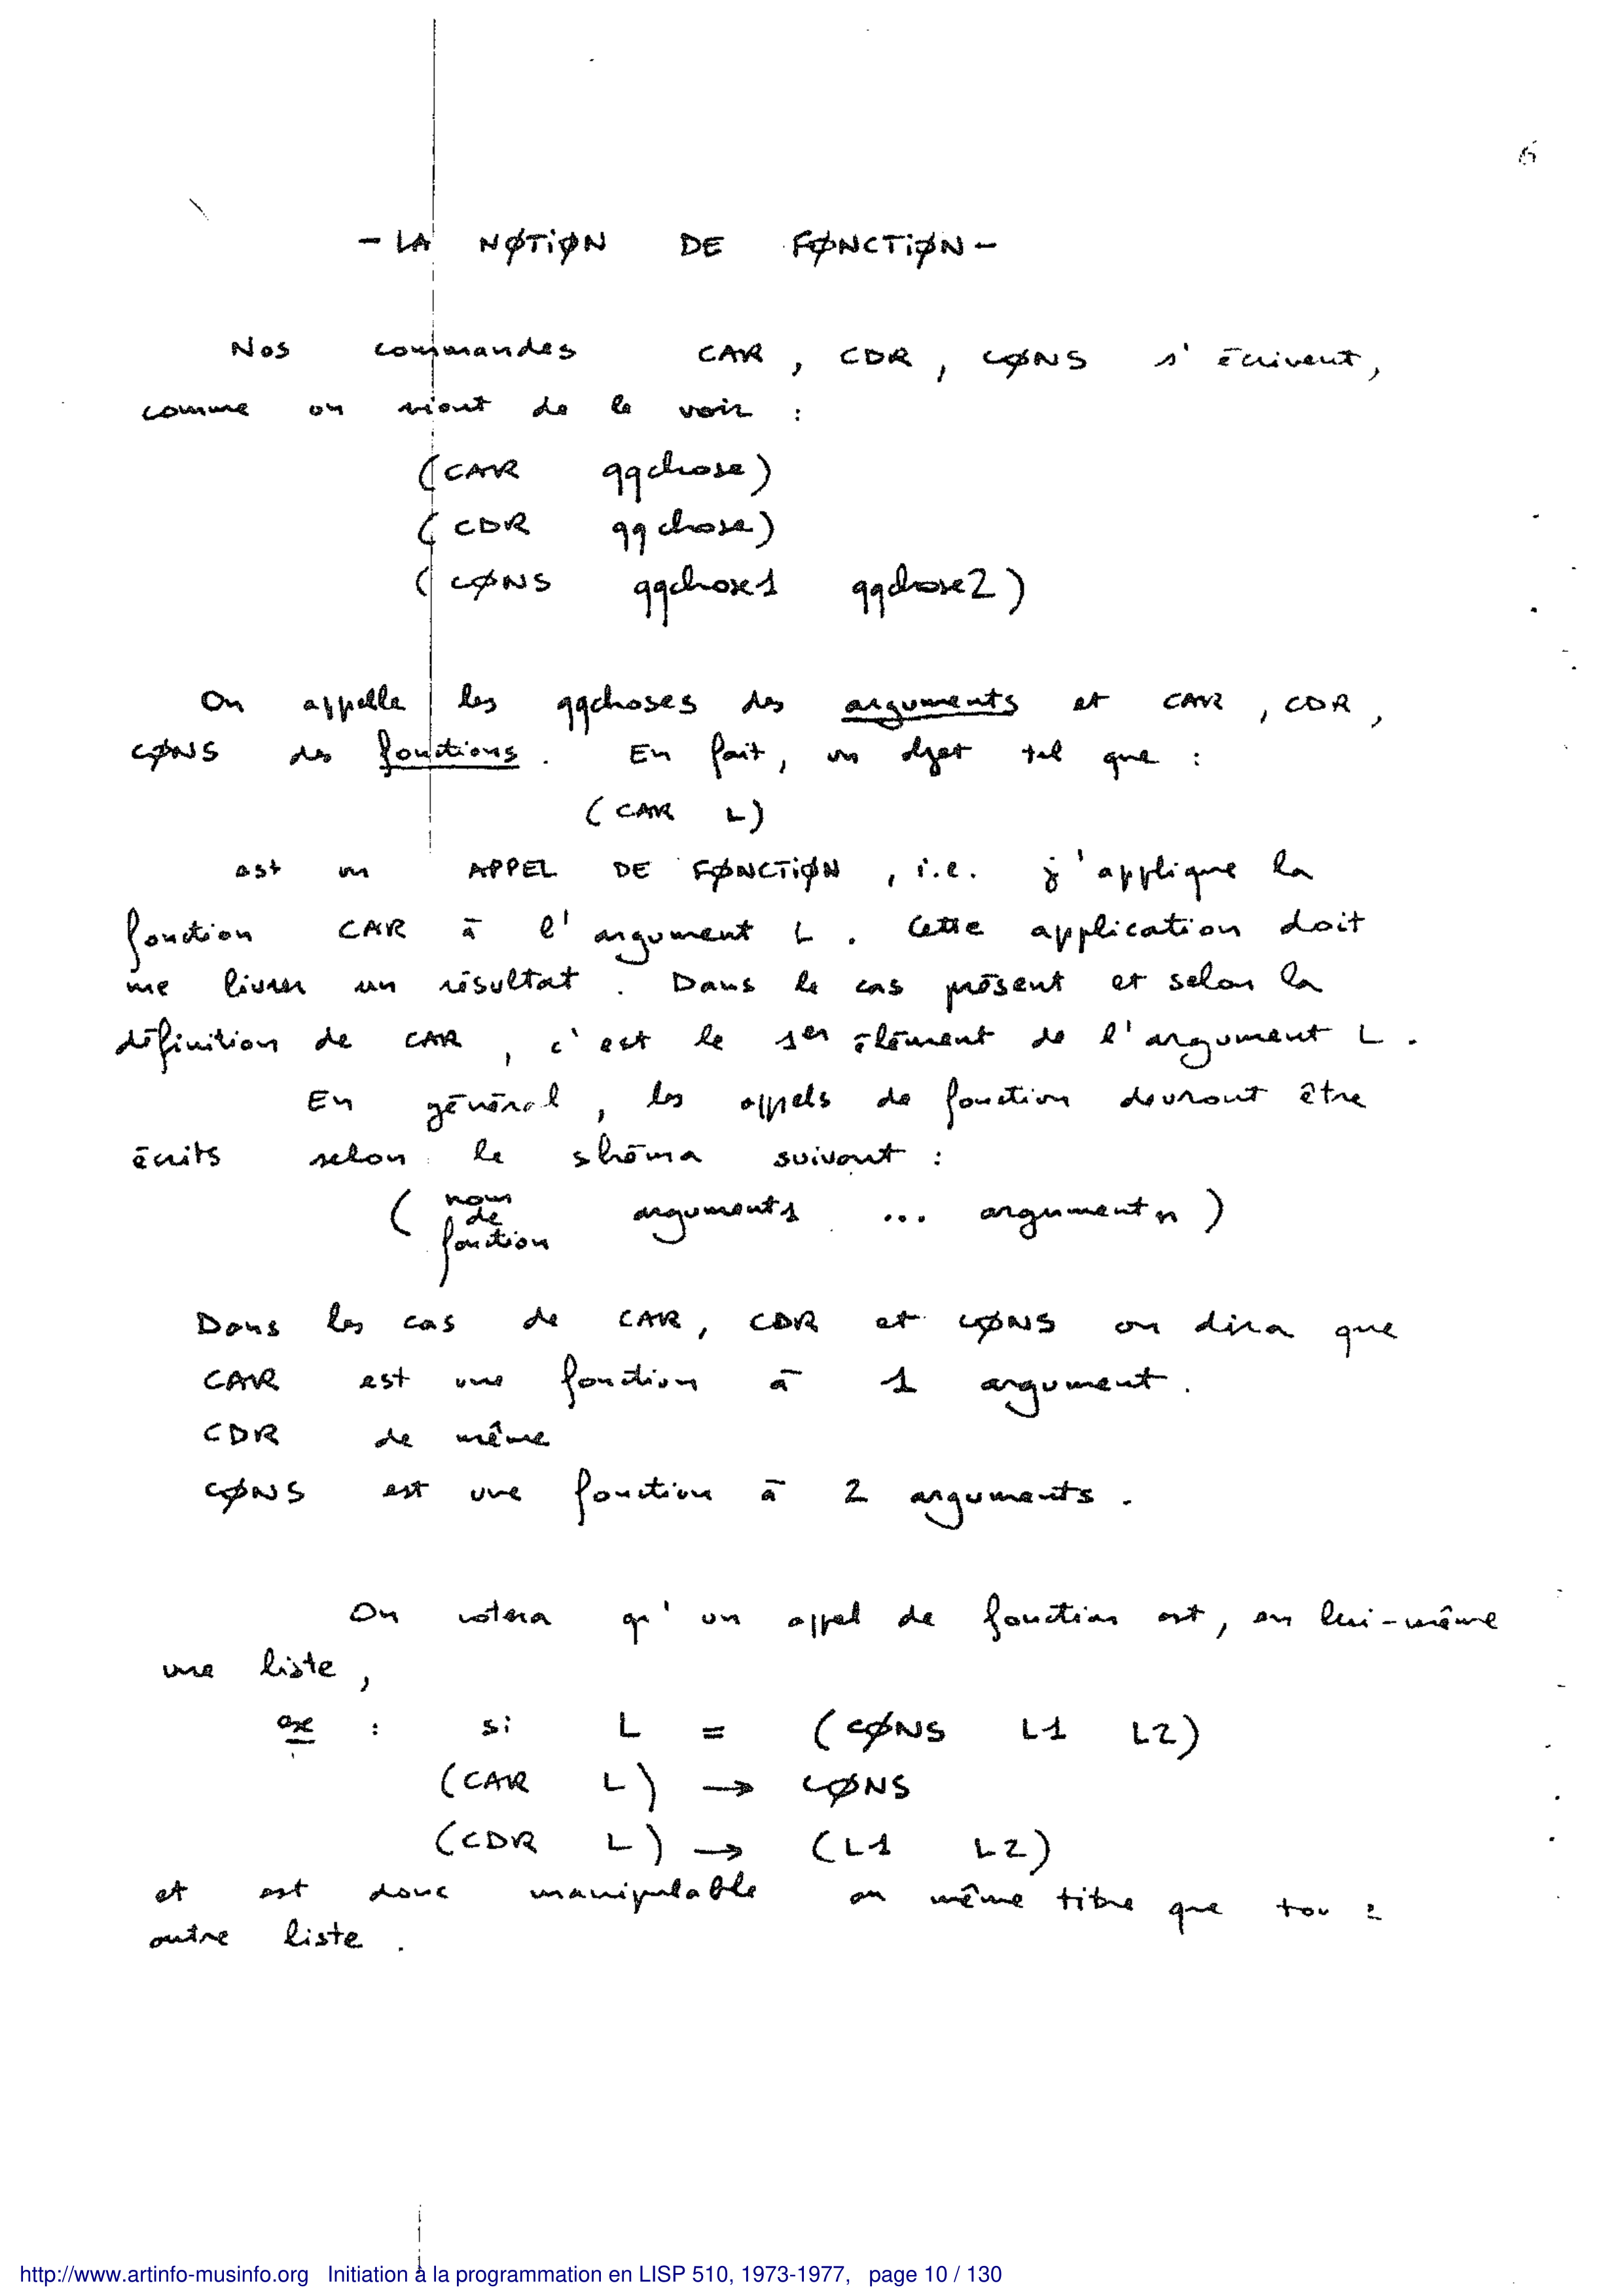 6
- LA NØTIØN DE FØNCTIØN -
Nos commandes CAR, CDR, CØNS s'écrivent,
comme on vient de le voir :
(CAR qqchose)
(CDR qqchose)
(CØNS qqchose1 qqchose2)
On appelle les qqchoses des arguments et CAR, CDR,
CØNS des fonctions. En fait, un objet tel que :
(CAR L)
est un APPEL DE FØNCTIØN, i.e. j'applique la
fonction CAR à l'argument L. Cette application doit
me livrer un résultat. Dans le cas présent et selon la
définition de CAR, c'est le 1er élément de l'argument L.
En général, les appels de fonction devront être
écrits selon le shéma suivant :
( nom
de
fonction argument1 ... argumentn )
Dans les cas de CAR, CDR et CØNS on dira que
CAR est une fonction à 1 argument.
CDR de même
CØNS est une fonction à 2 arguments.
On notera qu'un appel de fonction est, en lui-même
une liste,
ex : si L = (CØNS L1 L2)
(CAR L) → CØNS
(CDR L) → (L1 L2)
et est donc manipulable au même titre que
autre liste.
http://www.artinfo-musinfo.org Initiation à la programmation en LISP 510, 1973-1977, page 10 / 130